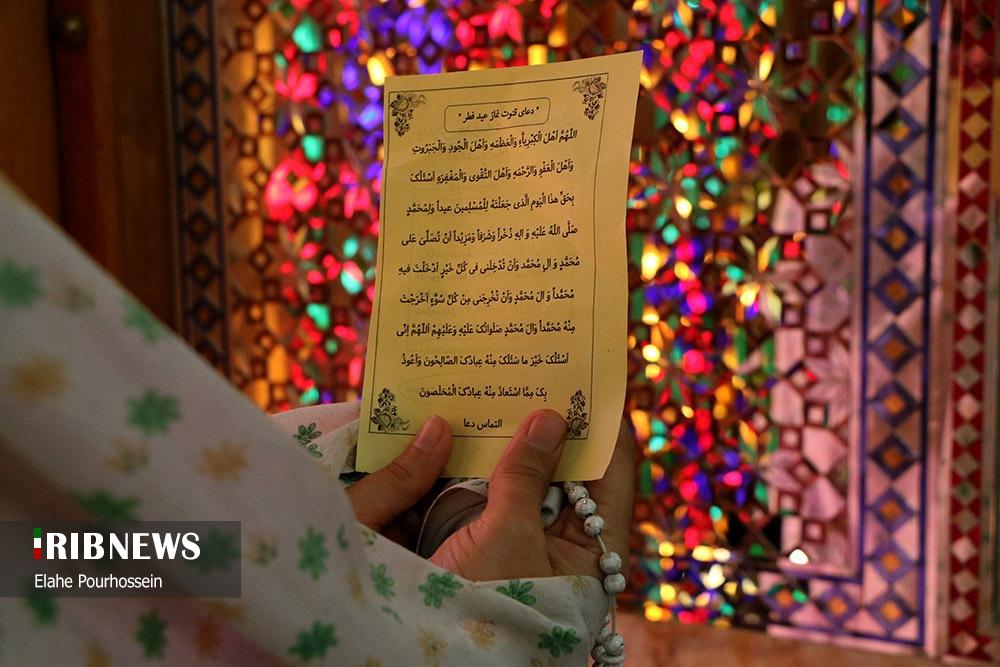 * دعای قنوت نماز عید فطر *
اَللّهُمَّ اَهْلَ الْکِبْرِیاَّءِ وَالْعَظَمَهِ وَاَهْلَ الْجُودِ وَالْجَبَرُوتِ
وَاَهْلَ الْعَفْوِ وَالرَّحْمَهِ وَاَهْلَ التَّقْوی وَالْمَغْفِرَهِ اَسْئَلُکَ
بِحَقِّ هذَا الْیَومِ الَّذی جَعَلْتَهُ لِلْمُسْلِمینَ عیداً وَلِمُحَمَّدٍ
صَلَّی اللهُ عَلَیْهِ وَ الِهِ ذُخْراً وَشَرَفاً وَمَزِیْداً اَنْ تُصَلِّیَ عَلی
مُحَمَّدٍ وَ الِ مُحَمَّد وَاَنْ تُدْخِلَنی فی کُلِّ خَیْرٍ اَدْخَلْتَ فیهِ
مُحَمَّداً وَ الَ مُحَمَّدٍ وَاَنْ تُخْرِجَنی مِنْ کُلِّ سُوَّءٍ اَخْرَجْتَ
مِنْهُ مُحَمَّداً وَالَ مُحَمَّدٍ صَلَواتُکَ عَلَیْهِ وَعَلَیْهِمْ اَللّهُمَّ اِنّی
اَسْئَلُکَ خَیْرَ ما سَئَلَکَ مِنْهُ عِبادُکَ الصّالِحُونَ وَاَعُوذُ
بِکَ مِمَّا اسْتَعاذَ مِنْهُ عِبادُکَ الْمُخْلَصُونَ
التماس دعا
IRIBNEWS
Elahe Pourhossein